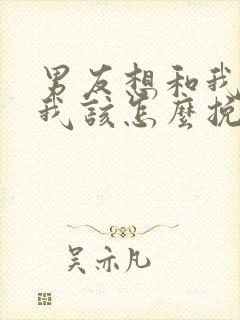 男友想和我
我該怎麼挽
吴亦凡